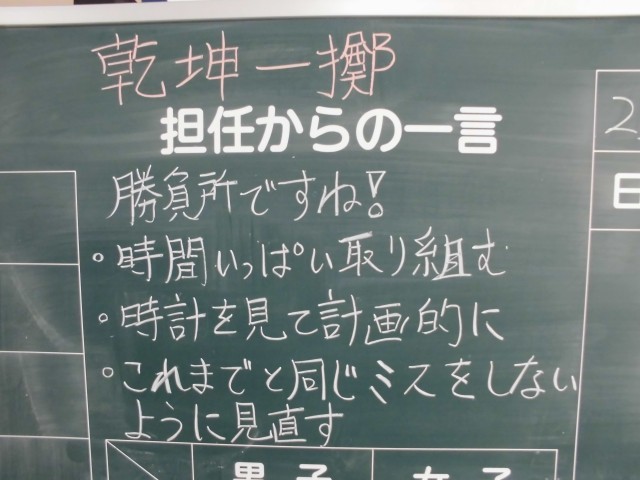 乾坤一擲
担任からの一言
勝負所ですね!
・時間いっぱい取り組む
・時計を見て計画的に
・これまでと同じミスをしない
ように見直す
男子 女子
2
日